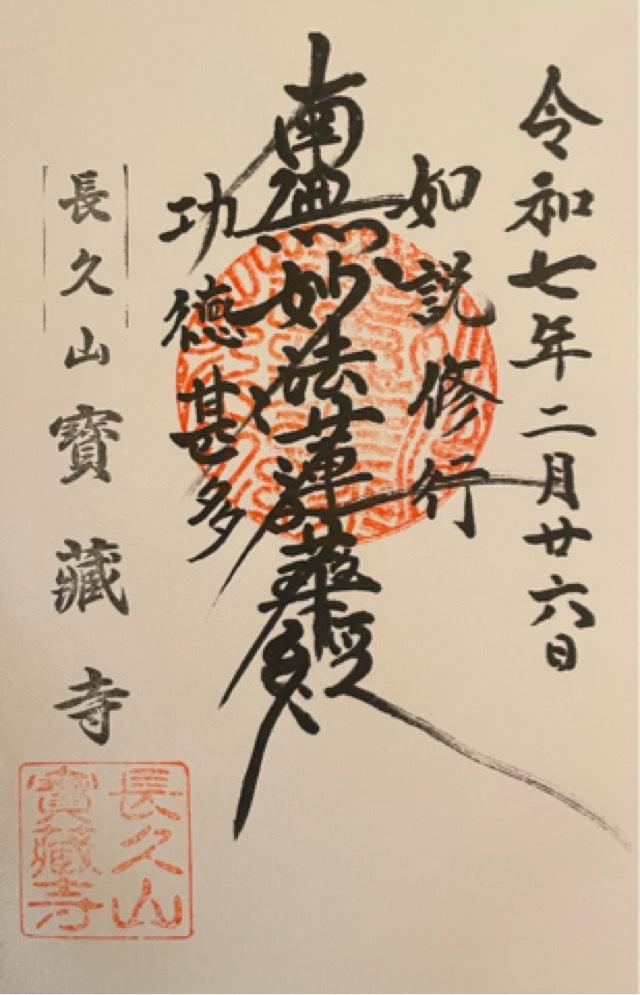 令和七年二月廿六日
如説修行
南無妙法蓮華経
功徳甚多
長久山寳藏寺
長久山
寳藏寺